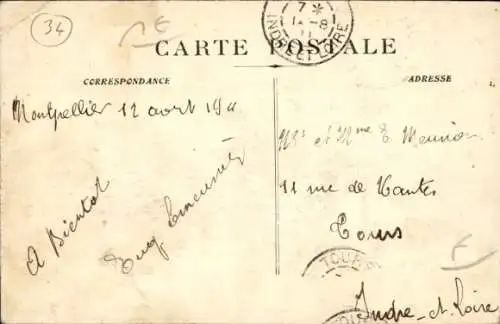 34
7 *
14-8
11
INDRE-ET-LOIRE
CARTE POSTALE
CORRESPONDANCE
ADRESSE
Montpellier 12 aout 1911
A Bientot
Mr et Mme E Meunier
11 rue de Nantes
Tours
TOURS
Indre-et-Loire